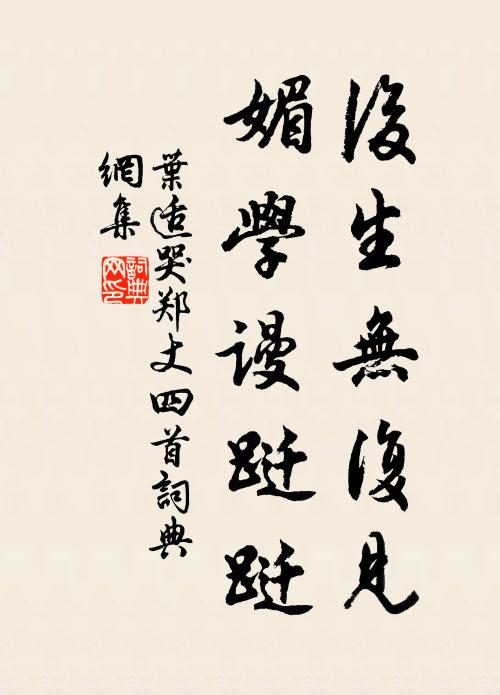 後生無復見
媚學謾跹跹
葉适哭郑丈四首詞典
網集
詞典網印